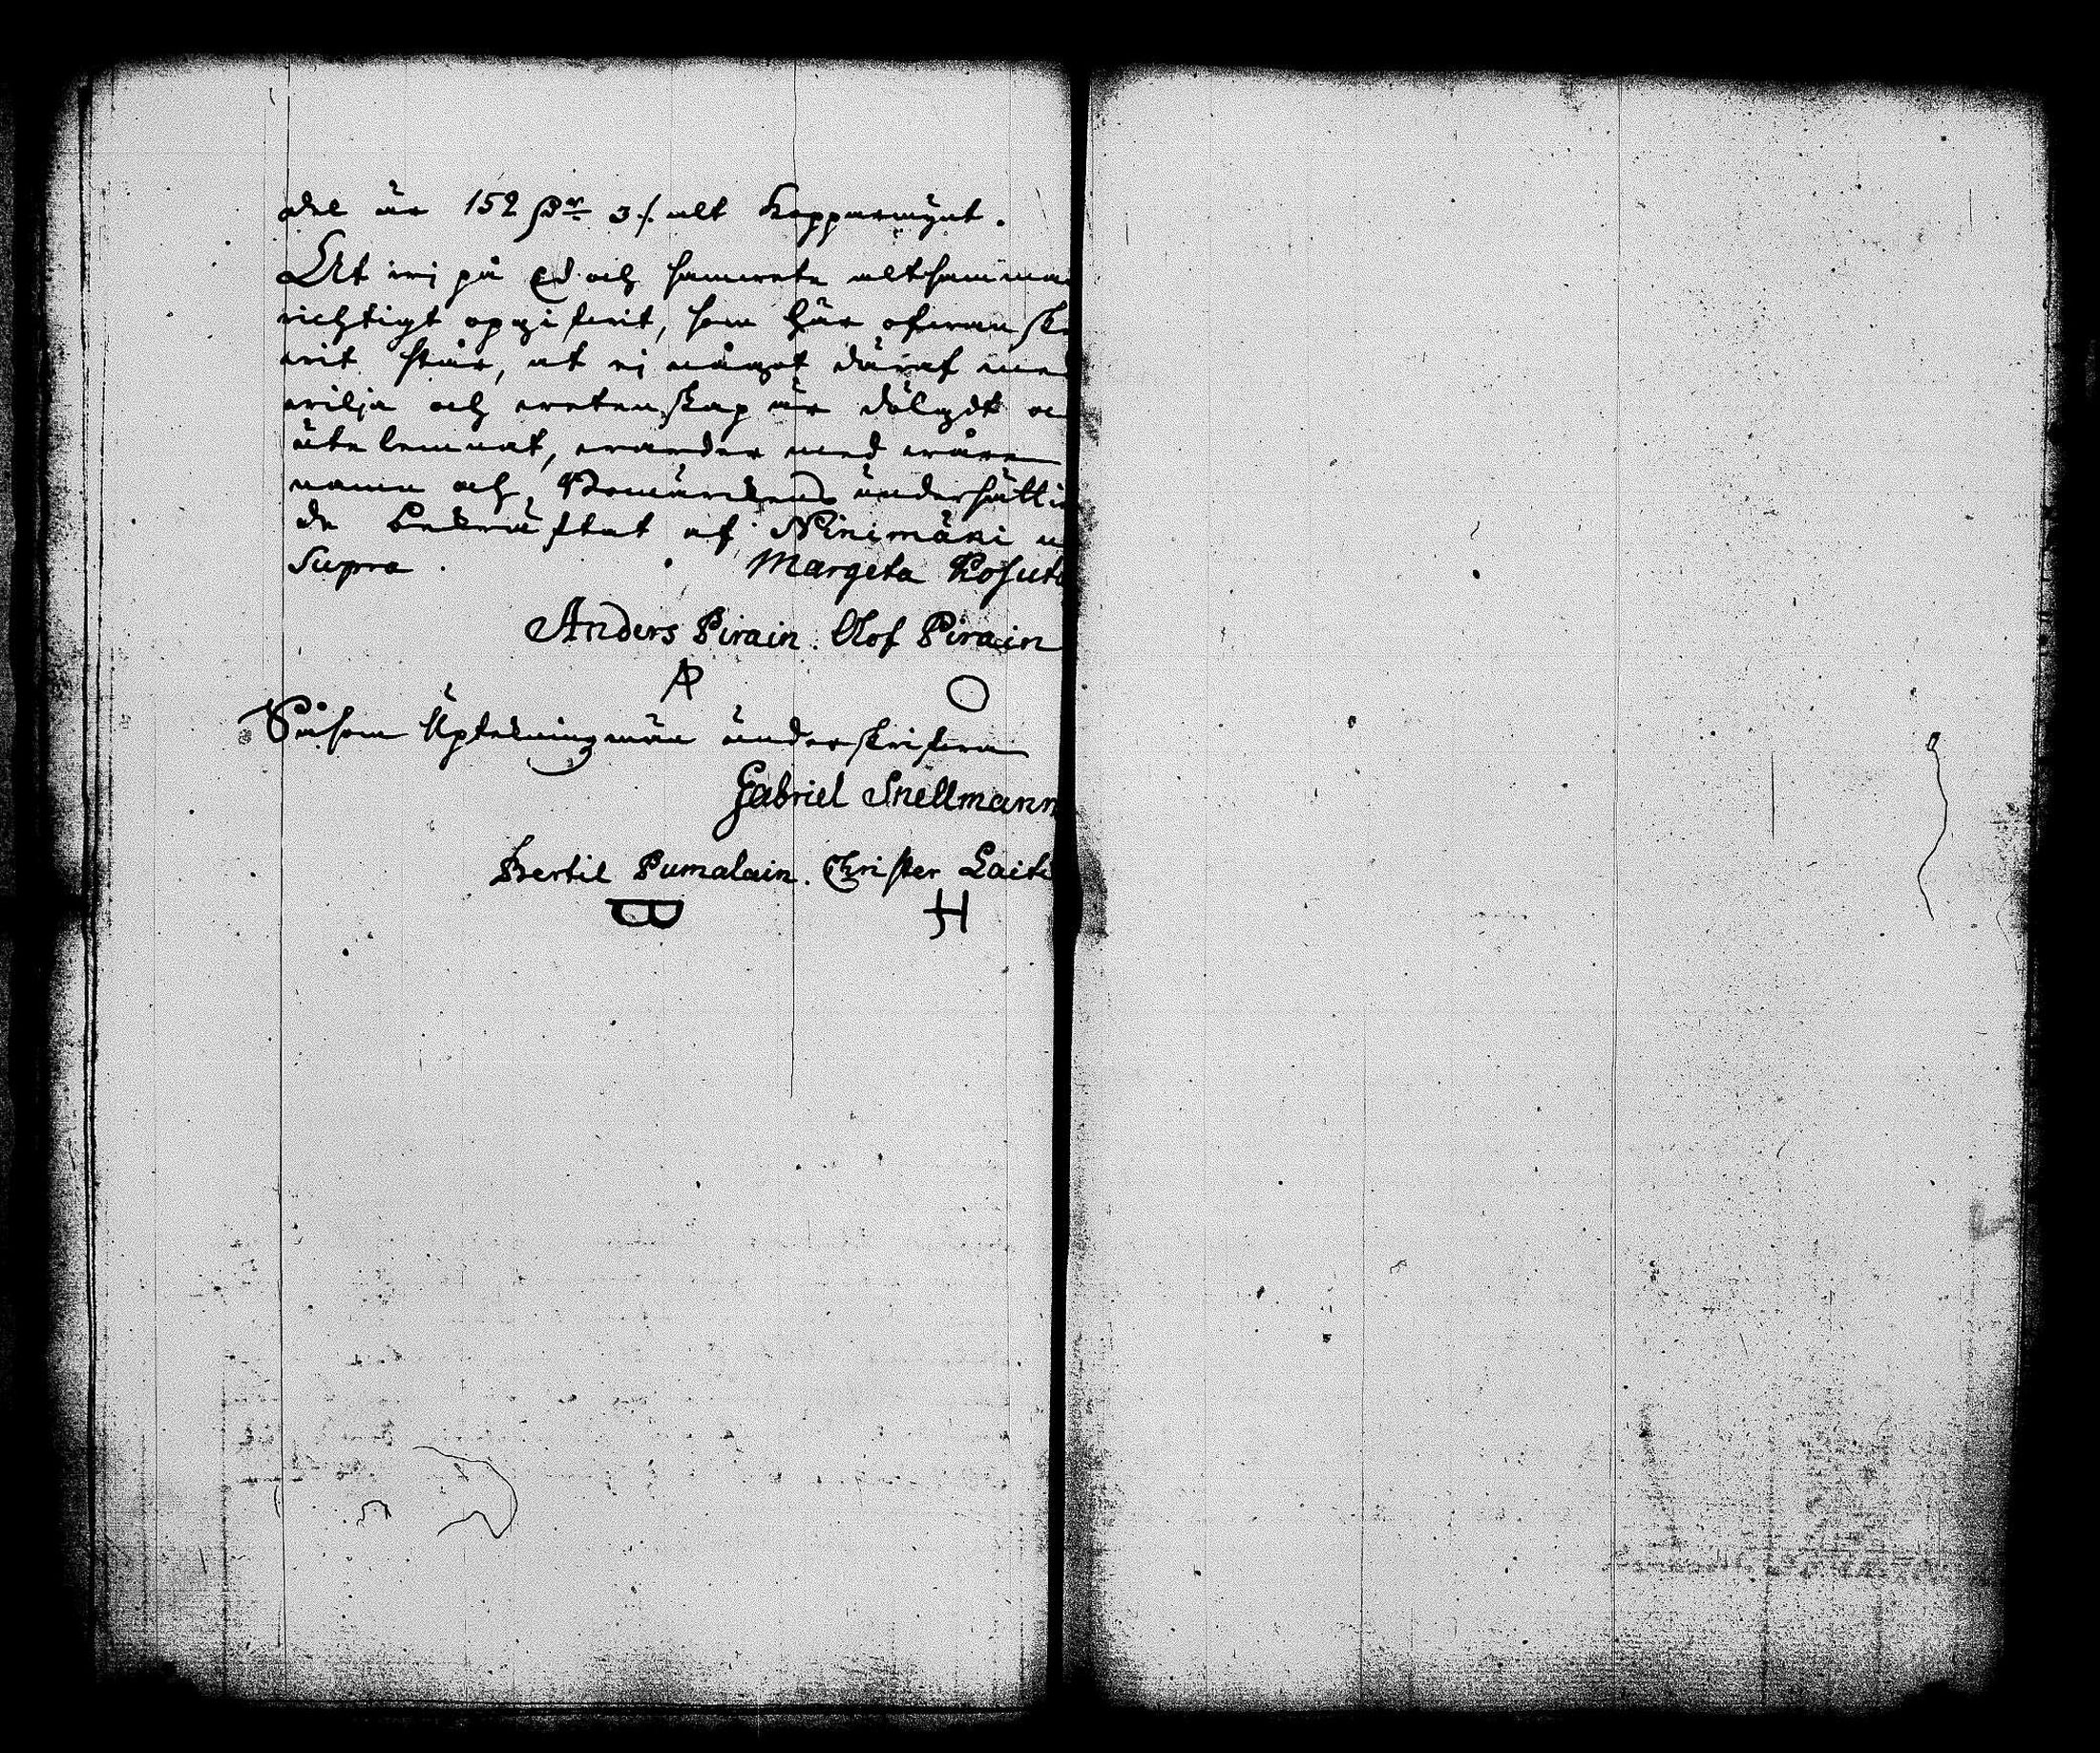 del är 152 Dr 3/. alt Koppermynt.
At wj på Ed och samwete altsamma
richtigt opgifwit, som här ofwan sk
wit står, at ej något däraf me
wilja och wetenskap är dölgdt oc
ute lemnat, warder med wåre
namn och Bomärckens undersätti
de bekräftat af Ninimäki u
Supra. Margeta Kosuta
Anders Pirain. Olof Pirain
AP O
Såsom Uptekningmän underskrifwa
Gabriel Snellmann
Bertil Pumalain. Christer Laiti
B H